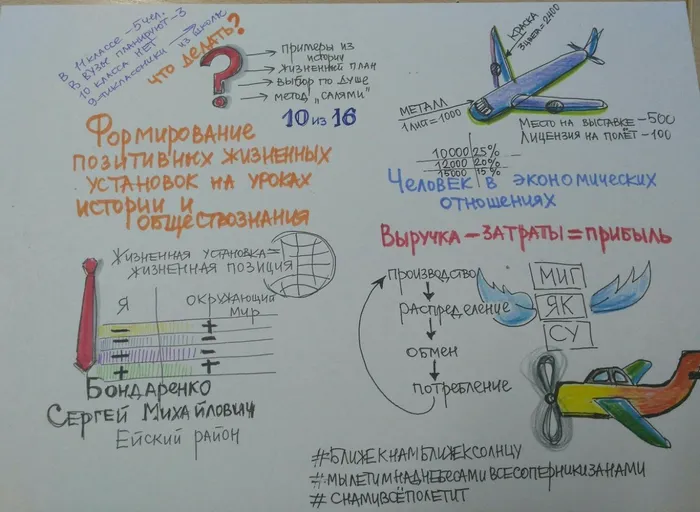 В 11 КЛАССЕ - 5 ЧЕЛ.
В ВУЗЫ ПЛАНИРУЮТ - 3
10 КЛАССА НЕТ
9-ТИКЛАССНИКИ ИЗ ШКОЛЫ
ЧТО ДЕЛАТЬ?
?
ПРИМЕРЫ ИЗ
ИСТОРИИ
ЖИЗНЕННЫЙ ПЛАН
ВЫБОР ПО ДУШЕ
МЕТОД „САЛЯМИ"
10 ИЗ 16
ФОРМИРОВАНИЕ
ПОЗИТИВНЫХ ЖИЗНЕННЫХ
УСТАНОВОК НА УРОКАХ
ИСТОРИИ И
ОБЩЕСТВОЗНАНИЯ
ЖИЗНЕННАЯ УСТАНОВКА =
ЖИЗНЕННАЯ ПОЗИЦИЯ
Я ОКРУЖАЮЩИЙ
МИР
- +
- -
+ -
+ +
БОНДАРЕНКО
СЕРГЕЙ МИХАЙЛОВИЧ
ЕЙСКИЙ РАЙОН
КРАСКА
3 ЦВЕТА = 2400
МЕТАЛЛ
1 ЛИСТ = 1000
МЕСТО НА ВЫСТАВКЕ - 500
ЛИЦЕНЗИЯ НА ПОЛЁТ - 100
10000 25%
12000 20%
15000 15%
ЧЕЛОВЕК В ЭКОНОМИЧЕСКИХ
ОТНОШЕНИЯХ
ВЫРУЧКА - ЗАТРАТЫ = ПРИБЫЛЬ
ПРОИЗВОДСТВО
РАСПРЕДЕЛЕНИЕ
ОБМЕН
ПОТРЕБЛЕНИЕ
МИГ
ЯК
СУ
#БЛИЖЕКНАМБЛИЖЕКСОЛНЦУ
#МЫЛЕТИМНАДНЕБЕСАМИВСЕСОПЕРНИКИЗАНАМИ
#СНАМИВСЁПОЛЕТИТ